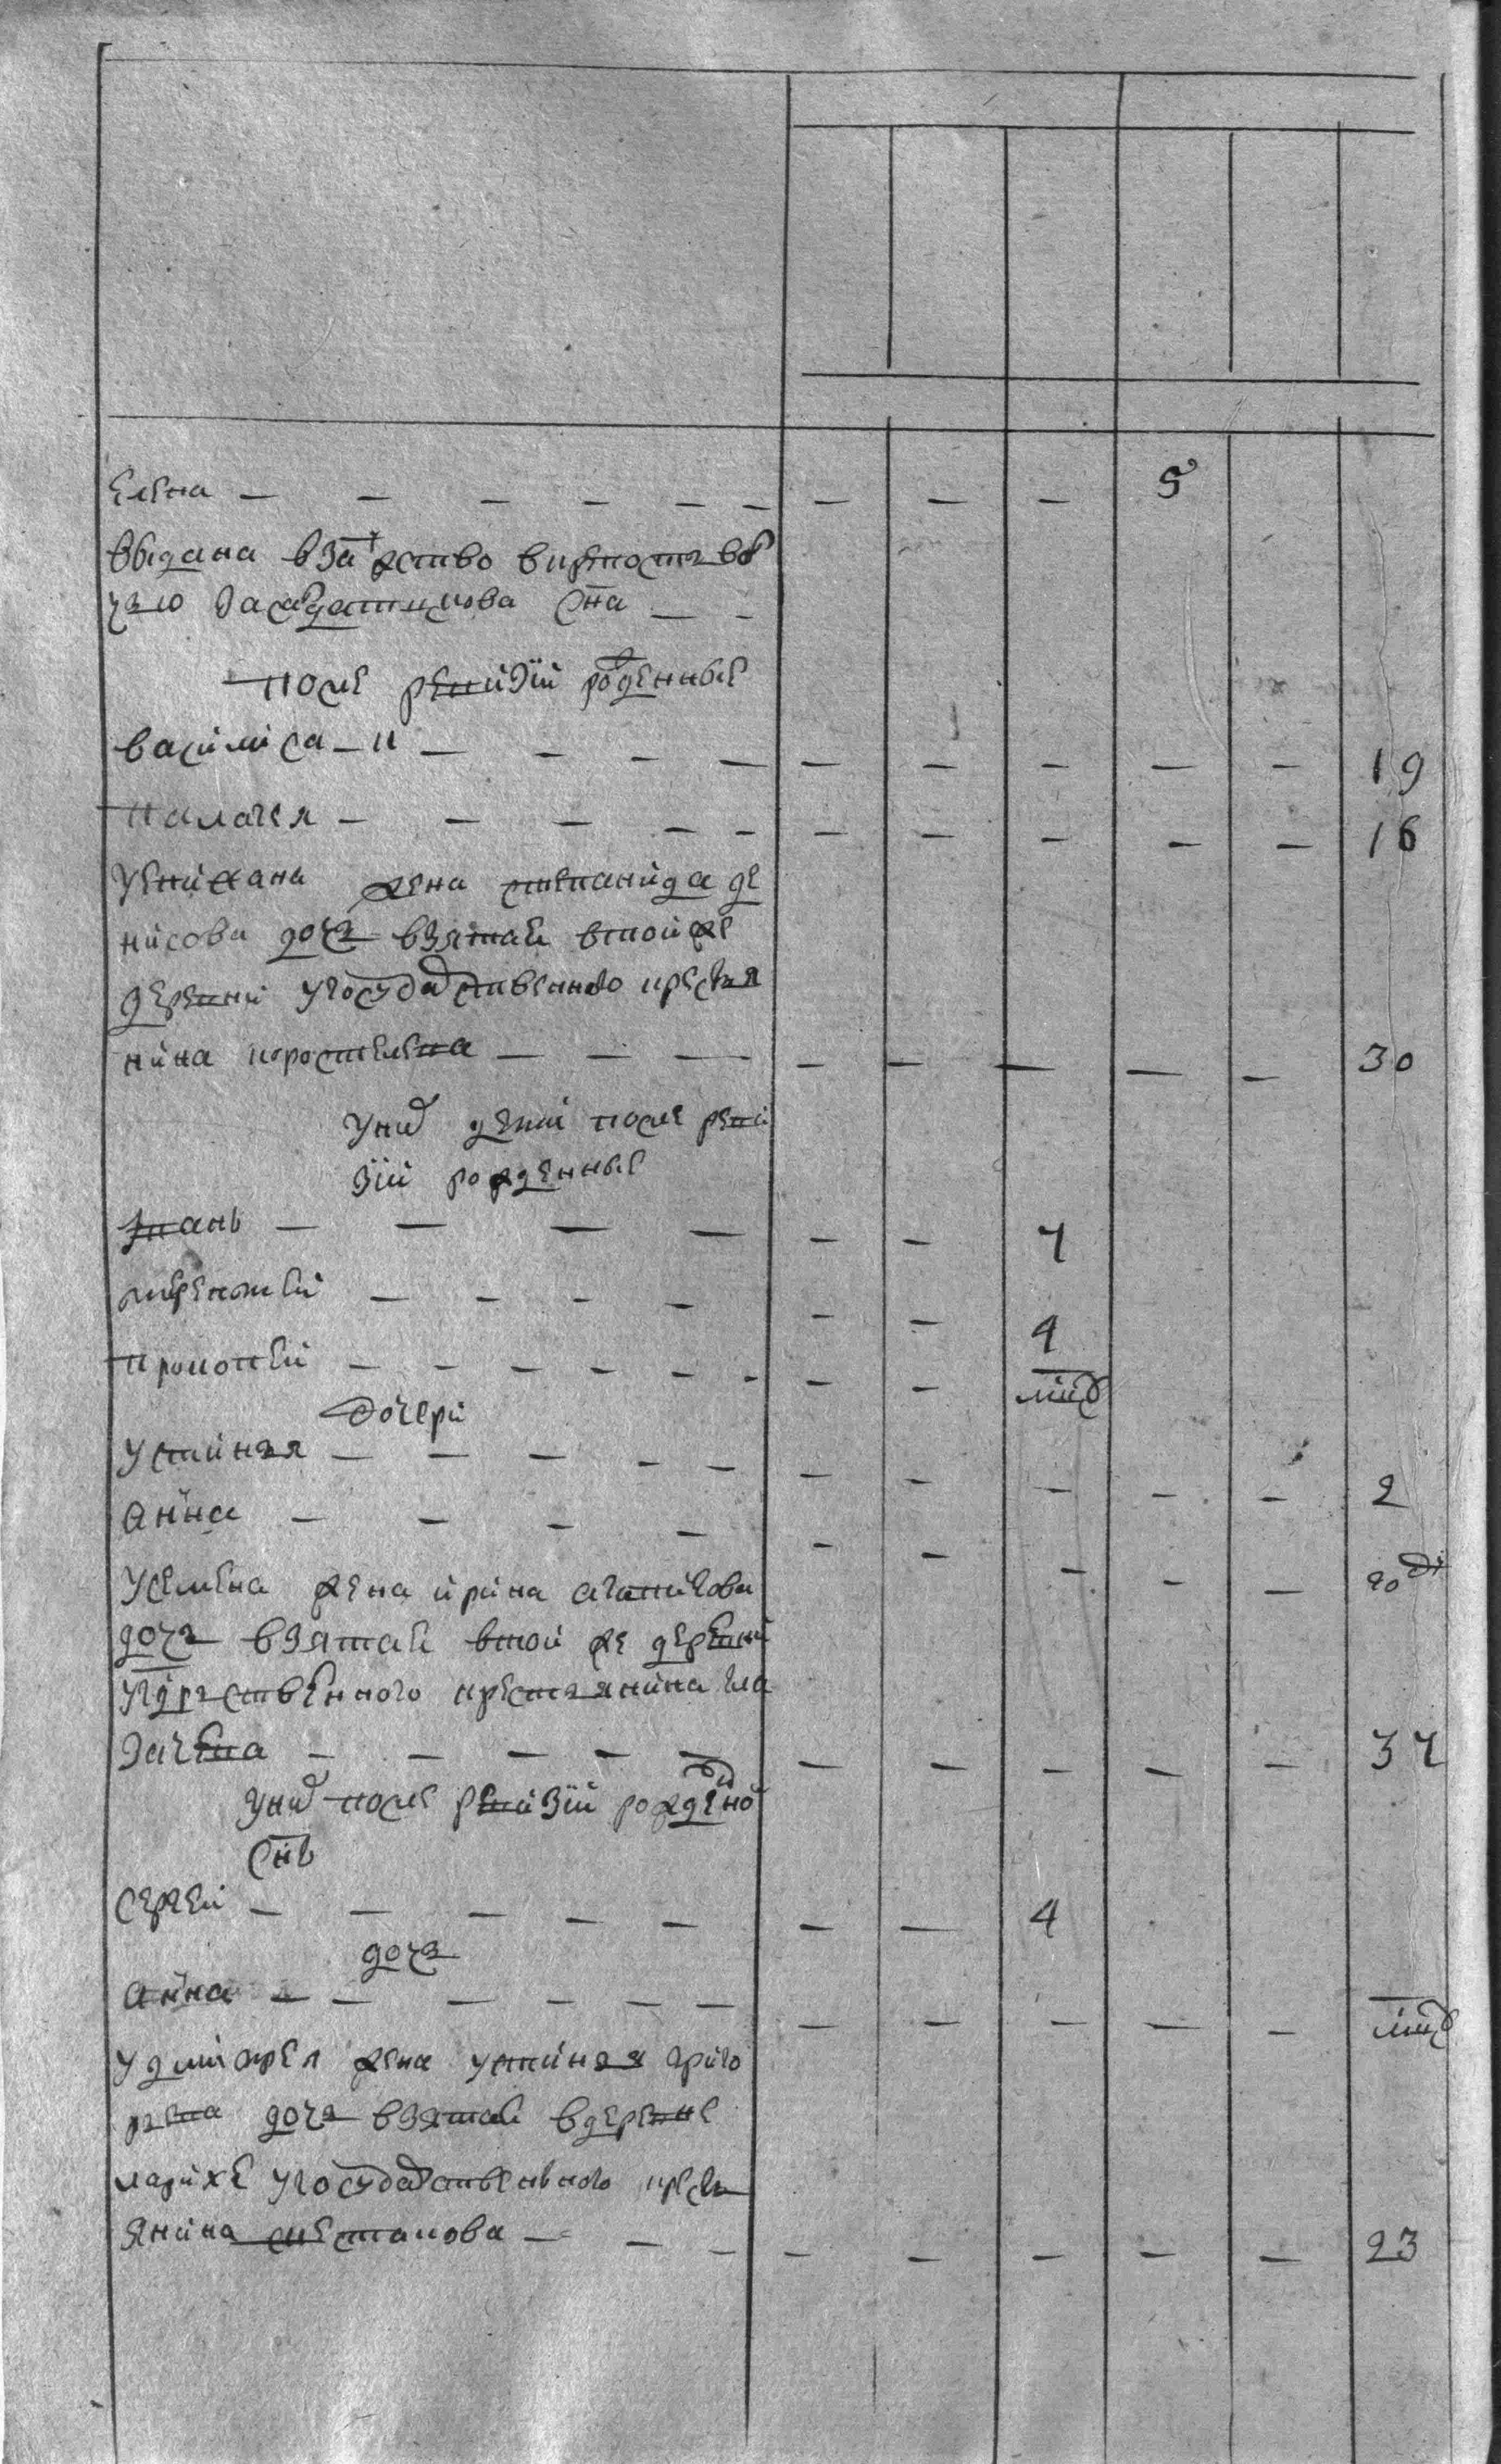 Елена — — — — — — — — — 5
выдана взамужство
сна — —
после ревизии рожденные
василиса — — — — — — — — — — 19
палагея — — — — — — — — — — 16
жена степанида де
нисова дочь взятая втой же
деревни угосударственного крестья
нина коростелева — — — — — — — — 30
уних детей после реви
зии рожденные
иванъ — — — — — — 4
терентей — — — — — — 4
прокопей — — — — — — — — мцд
дочери
устинья — — — — — — — — — — 2
анна — — — — — — — — —
усемена жена ирина
дочь взятая втой же деревни
угдрьственного крестьянина ка
зачева — — — — — — — — — — 34
уних после ревизии рожденной
снъ
сергей — — — — — — — 4
дочь
анна — — — — — — — — — — — мцд
удмитрея жена устинья григо
рьева дочь взятая вдеревне
ларихе угосударственного кресть
янина шестакова — — — — — — — — 23